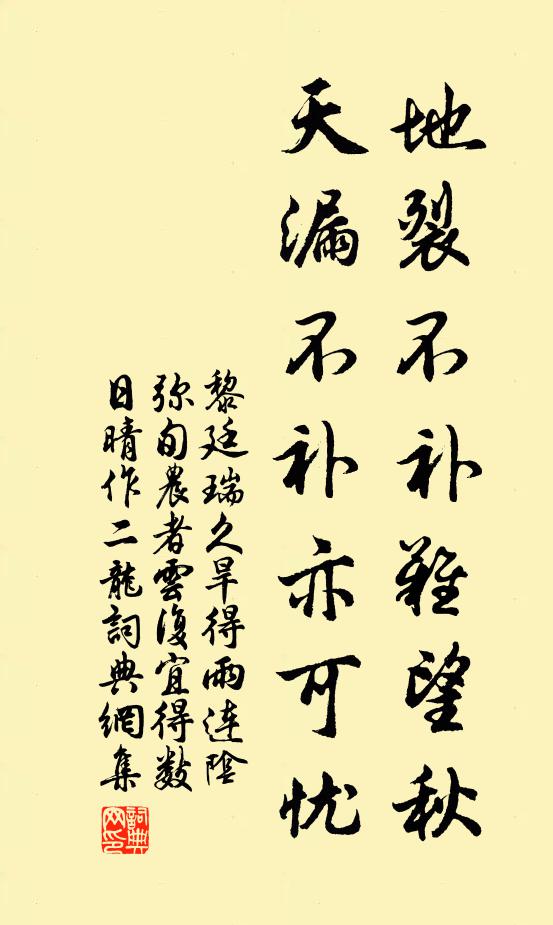 地裂不补难望秋
天漏不补亦可忧
黎廷瑞久旱得雨连阴
弥旬農者雲復宜得数
日晴作二龍詞典網集
詞典网印